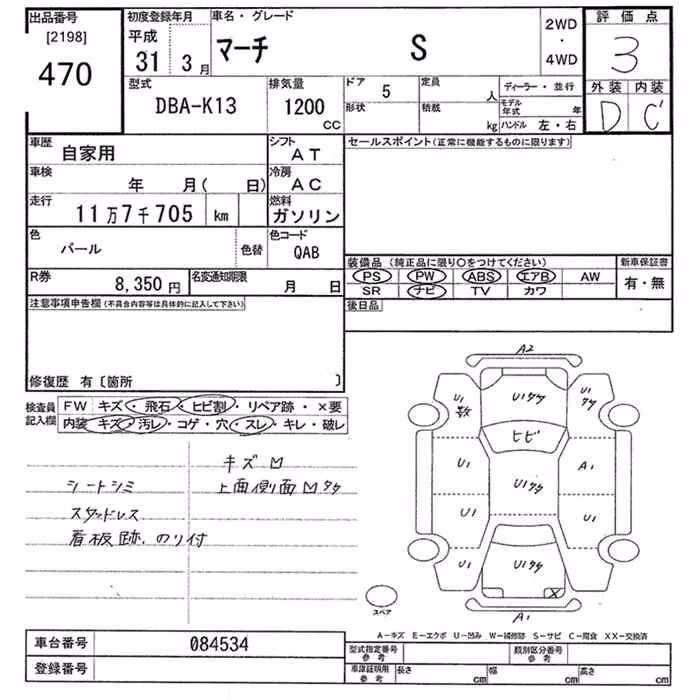 出品番号
[2198]
470
初度登録年月
平成
31 3月
車名・グレード
マーチ S
2WD
・
4WD
評価点
3
外装 内装
D C
型式
DBA-K13
排気量
1200
cc
ドア 5
形状
定員 人
積載 kg
ディーラー・並行
モデル年式 年
ハンドル 左・右
車歴
自家用
シフト
AT
車検
年 月( 日)
冷房
AC
走行
11万7千705 km
燃料
ガソリン
色
パール
色替
色コード
QAB
R券
8,350円
名変通知期限
月 日
セールスポイント(正常に機能するものに限ります)
装備品 (純正品に限り○をつけてください)
PS PW ABS エアB AW
SR ナビ TV カワ
新車保証書
有・無
後日品
注意事項申告欄(不具合内容等は具体的に記入して下さい)
修復歴 有〔箇所 〕
検査員
記入欄
FW キズ・飛石・ヒビ割・リペア跡・×要
内装 キズ・汚レ・コゲ・穴・スレ・キレ・破レ
シートシミ
スタッドレス
看板跡、のり付
キズ凹
上面側面凹タタ
A2
U1
U1タタ
U1
タタ
ヒビ
U1
U1タタ
A1
U1
U1
U1
U1タタ
U1
X
A1
スペア
A−キズ E−エクボ U−凹み W−補修跡 S−サビ C−腐食 XX−交換済
車台番号 084534
登録番号
型式指定番号
参考
類別区分番号
参考
車庫証明用
参考
長さ cm
幅 cm
高さ cm